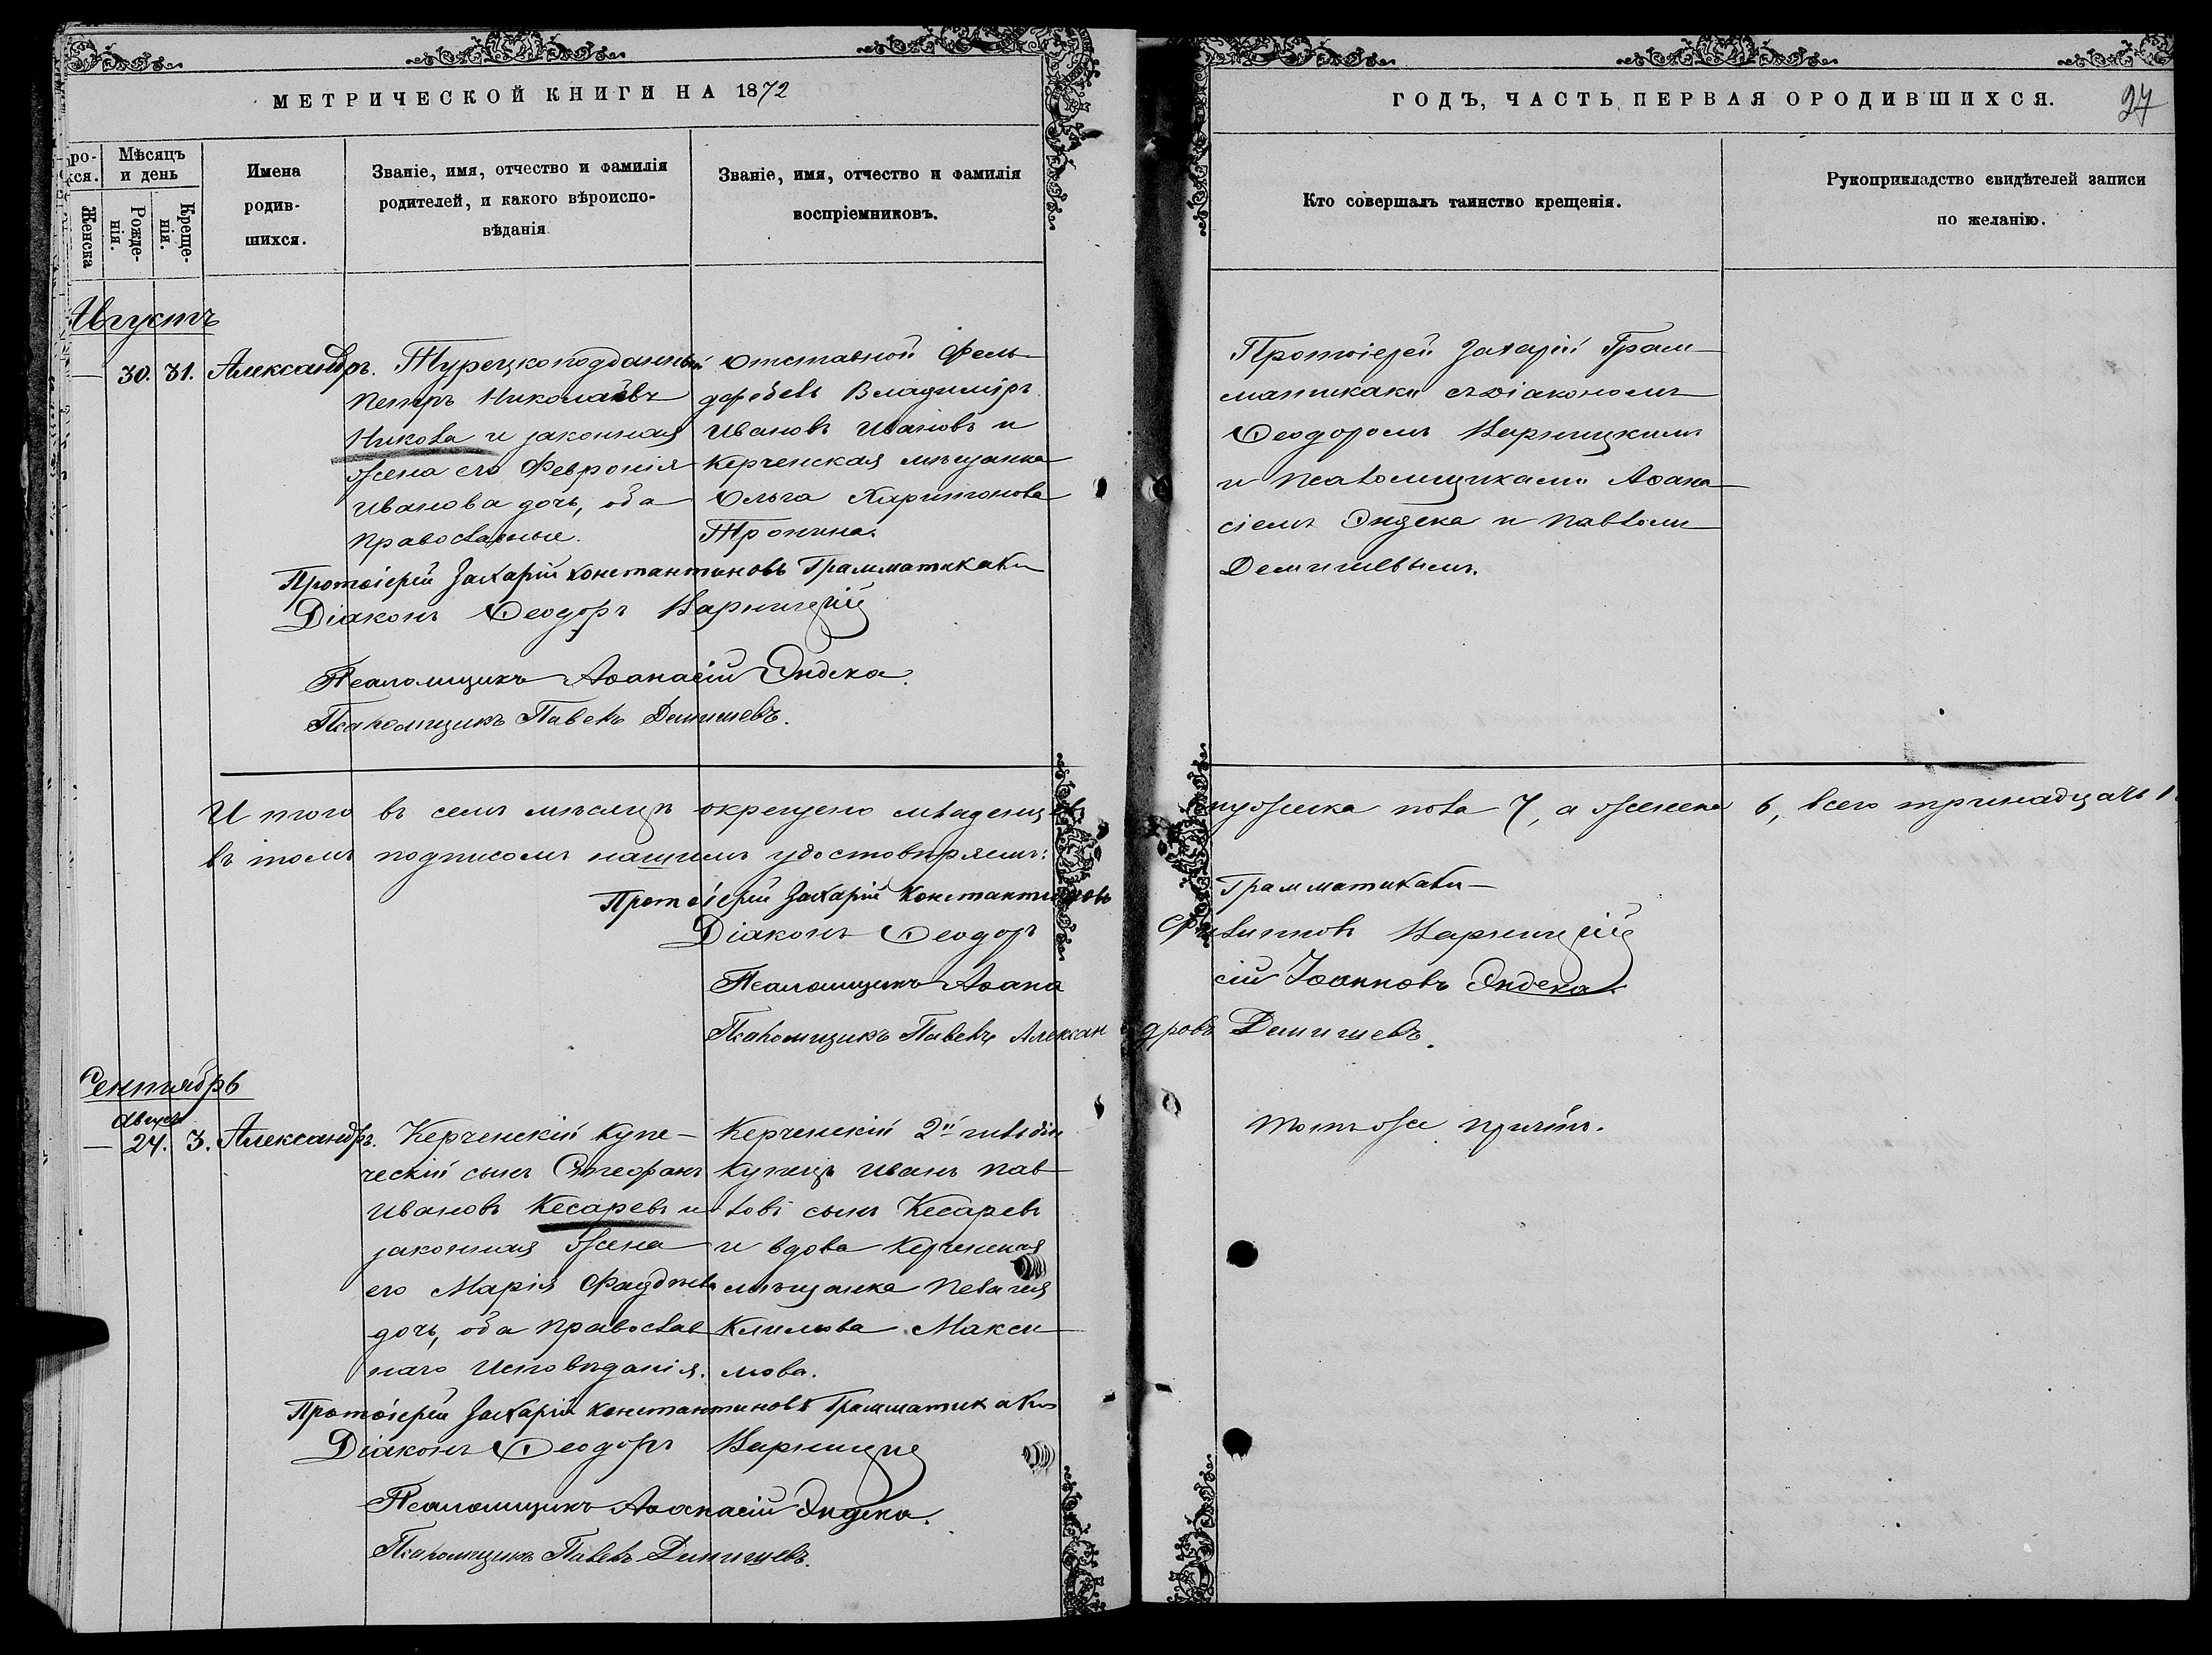 МЕТРИЧЕСКОЙ КНИГИ НА 1872
ГОДЪ, ЧАСТЬ ПЕРВАЯ О РОДИВШИХСЯ.
27
Мѣсяцъ
и день
Женска
Рожде-
нія.
Креще-
нія.
Имена
родив-
шихся.
Званіе, имя, отчество и фамилія
родителей, и какого вѣроиспо-
вѣданія
Званіе, имя, отчество и фамилія
воспріемниковъ.
Кто совершалъ таинство крещенія.
Рукоприкладство свидѣтелей записи
по желанію.
Августъ
— 30. 31. Александръ.
Турецкоподданный
Петръ Николаевъ
Никола и законная
жена его Февронія
Иванова дочь, оба
православные.
Отставной Фель-
дфебель Владиміръ
Ивановъ Ивановъ и
Керченская мѣщанка
Ольга Харитонова
Тронина.
Протоіерей Захарій Грам-
матикаки съ діакономъ
Ѳеодоромъ Варницкимъ
и псаломщиками Аѳана-
сіемъ Эндека и Павломъ
Демишевымъ.
Протоіерей Захарій Константиновъ Грамматикаки
Діаконъ Ѳеодоръ Варницкій
Псаломщикъ Аѳанасій Эндека.
Псаломщикъ Павелъ Демишевъ.
Итого въ семъ мѣсяцѣ окрещено младенцевъ мужеска пола 7, а женска 6, всего тринадцать
въ томъ подписомъ нашимъ удостовѣряемъ:
Протоіерей Захарій Константиновъ Грамматикаки
Діаконъ Ѳеодоръ Филипповъ Варницкій
Псаломщикъ Аѳанасій Іоанновъ Эндека.
Псаломщикъ Павелъ Александровъ Демишевъ.
Сентябрь
Августа
— 24. 3. Александръ.
Керченскій купе-
ческій сынъ Стефанъ
Ивановъ Кесаревъ и
законная жена
его Марія
дочь, оба православ
наго исповѣданія.
Керченскій 2й гильдіи
купецъ Иванъ Пав-
ловъ сынъ Кесаревъ
и вдова Керченская
мѣщанка Пелагія
Климова Макси-
мова.
Тотъ же причтъ.
Протоіерей Захарій Константиновъ Грамматикаки
Діаконъ Ѳеодоръ Варницкій
Псаломщикъ Аѳанасій Эндека.
Псаломщикъ Павелъ Демишевъ.